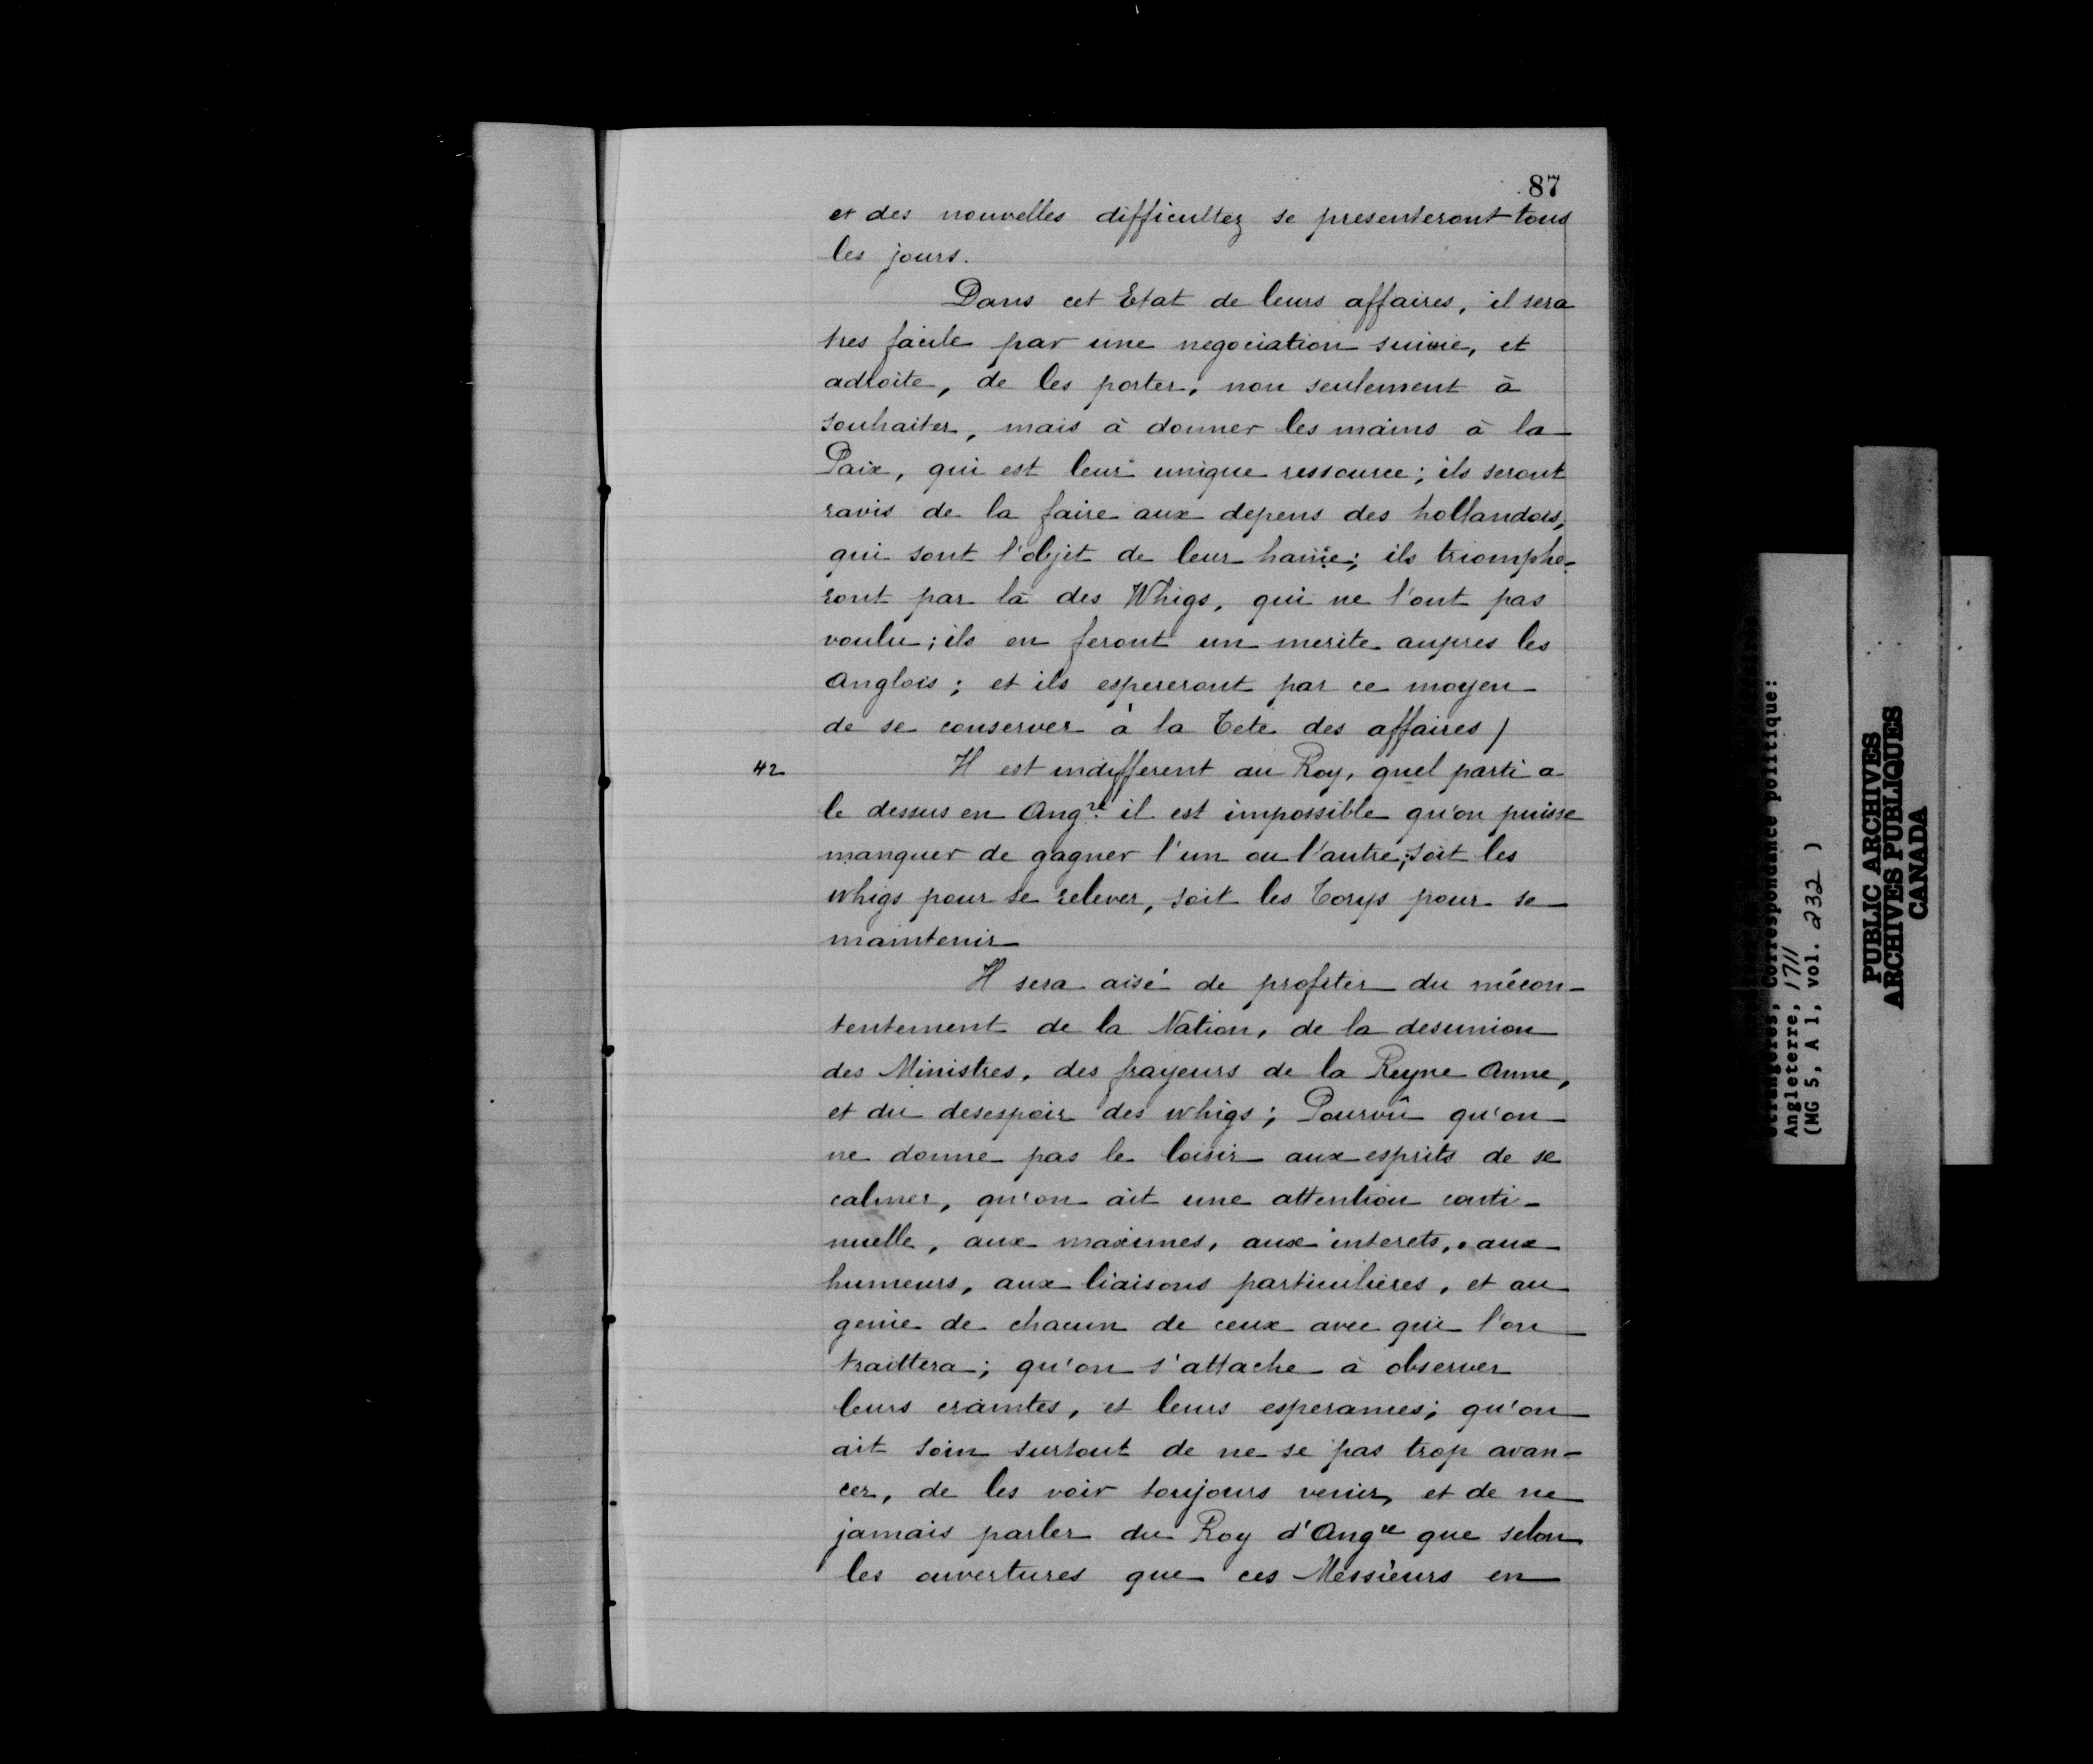 87
et des nouvelles difficultez se presenteront tous
les jours.
Dans cet Etat de leurs affaires, il sera
tres facile par une negociation suivie, et
adroite, de les porter, non seulement à
souhaiter, mais à donner les mains à la
Paix, qui est leur unique ressource; ils seront
ravis de la faire aux depens des hollandois,
qui sont l'objet de leur haine; ils triomphe-
ront par là des Whigs, qui ne l'ont pas
voulu; ils en feront un merite aupres les
Anglois; et ils espereront par ce moyen
de se conserver à la Tete des affaires /
42
Il est indifferent au Roy, quel parti a
le dessus en Angre il est impossible qu'on puisse
manquer de gagner l'un ou l'autre; soit les
whigs pour se relever, soit les Torys pour se
maintenir
Il sera aisé de profiter du mécon-
tentement de la Nation, de la desunion
des Ministres, des frayeurs de la Reyne Anne,
et du desespoir des whigs; Pourvû qu'on
ne donne pas le loisir aux esprits de se
calmer, qu'on ait une attention conti-
nuelle, aux maximes, aux interets, aux
humeurs, aux liaisons particulieres, et au
genie de chacun de ceux avec qui l'on
traittera; qu'on s'attache à observer
leurs craintes, et leurs esperances; qu'on
ait soin surtout de ne se pas trop avan-
cer, de les voir toujours venir, et de ne
jamais parler du Roy d'Angre que selon
les ouvertures que ces Messieurs en
étrangères, Correspondance politique:
Angleterre, 1711
(MG 5, A 1, vol. 232 )
PUBLIC ARCHIVES
ARCHIVES PUBLIQUES
CANADA